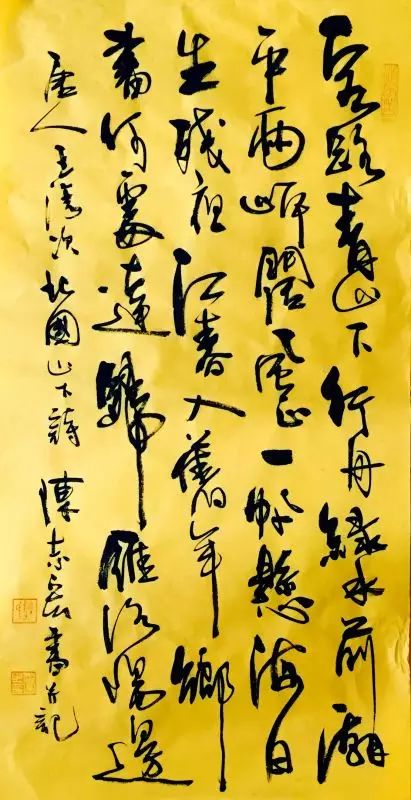 客路青山下行舟綠水前潮
平兩岸闊風正一帆懸海日
生殘夜江春入舊年鄉
書何處達歸雁洛陽邊
唐人王灣次北國山下詩 陳志書并記